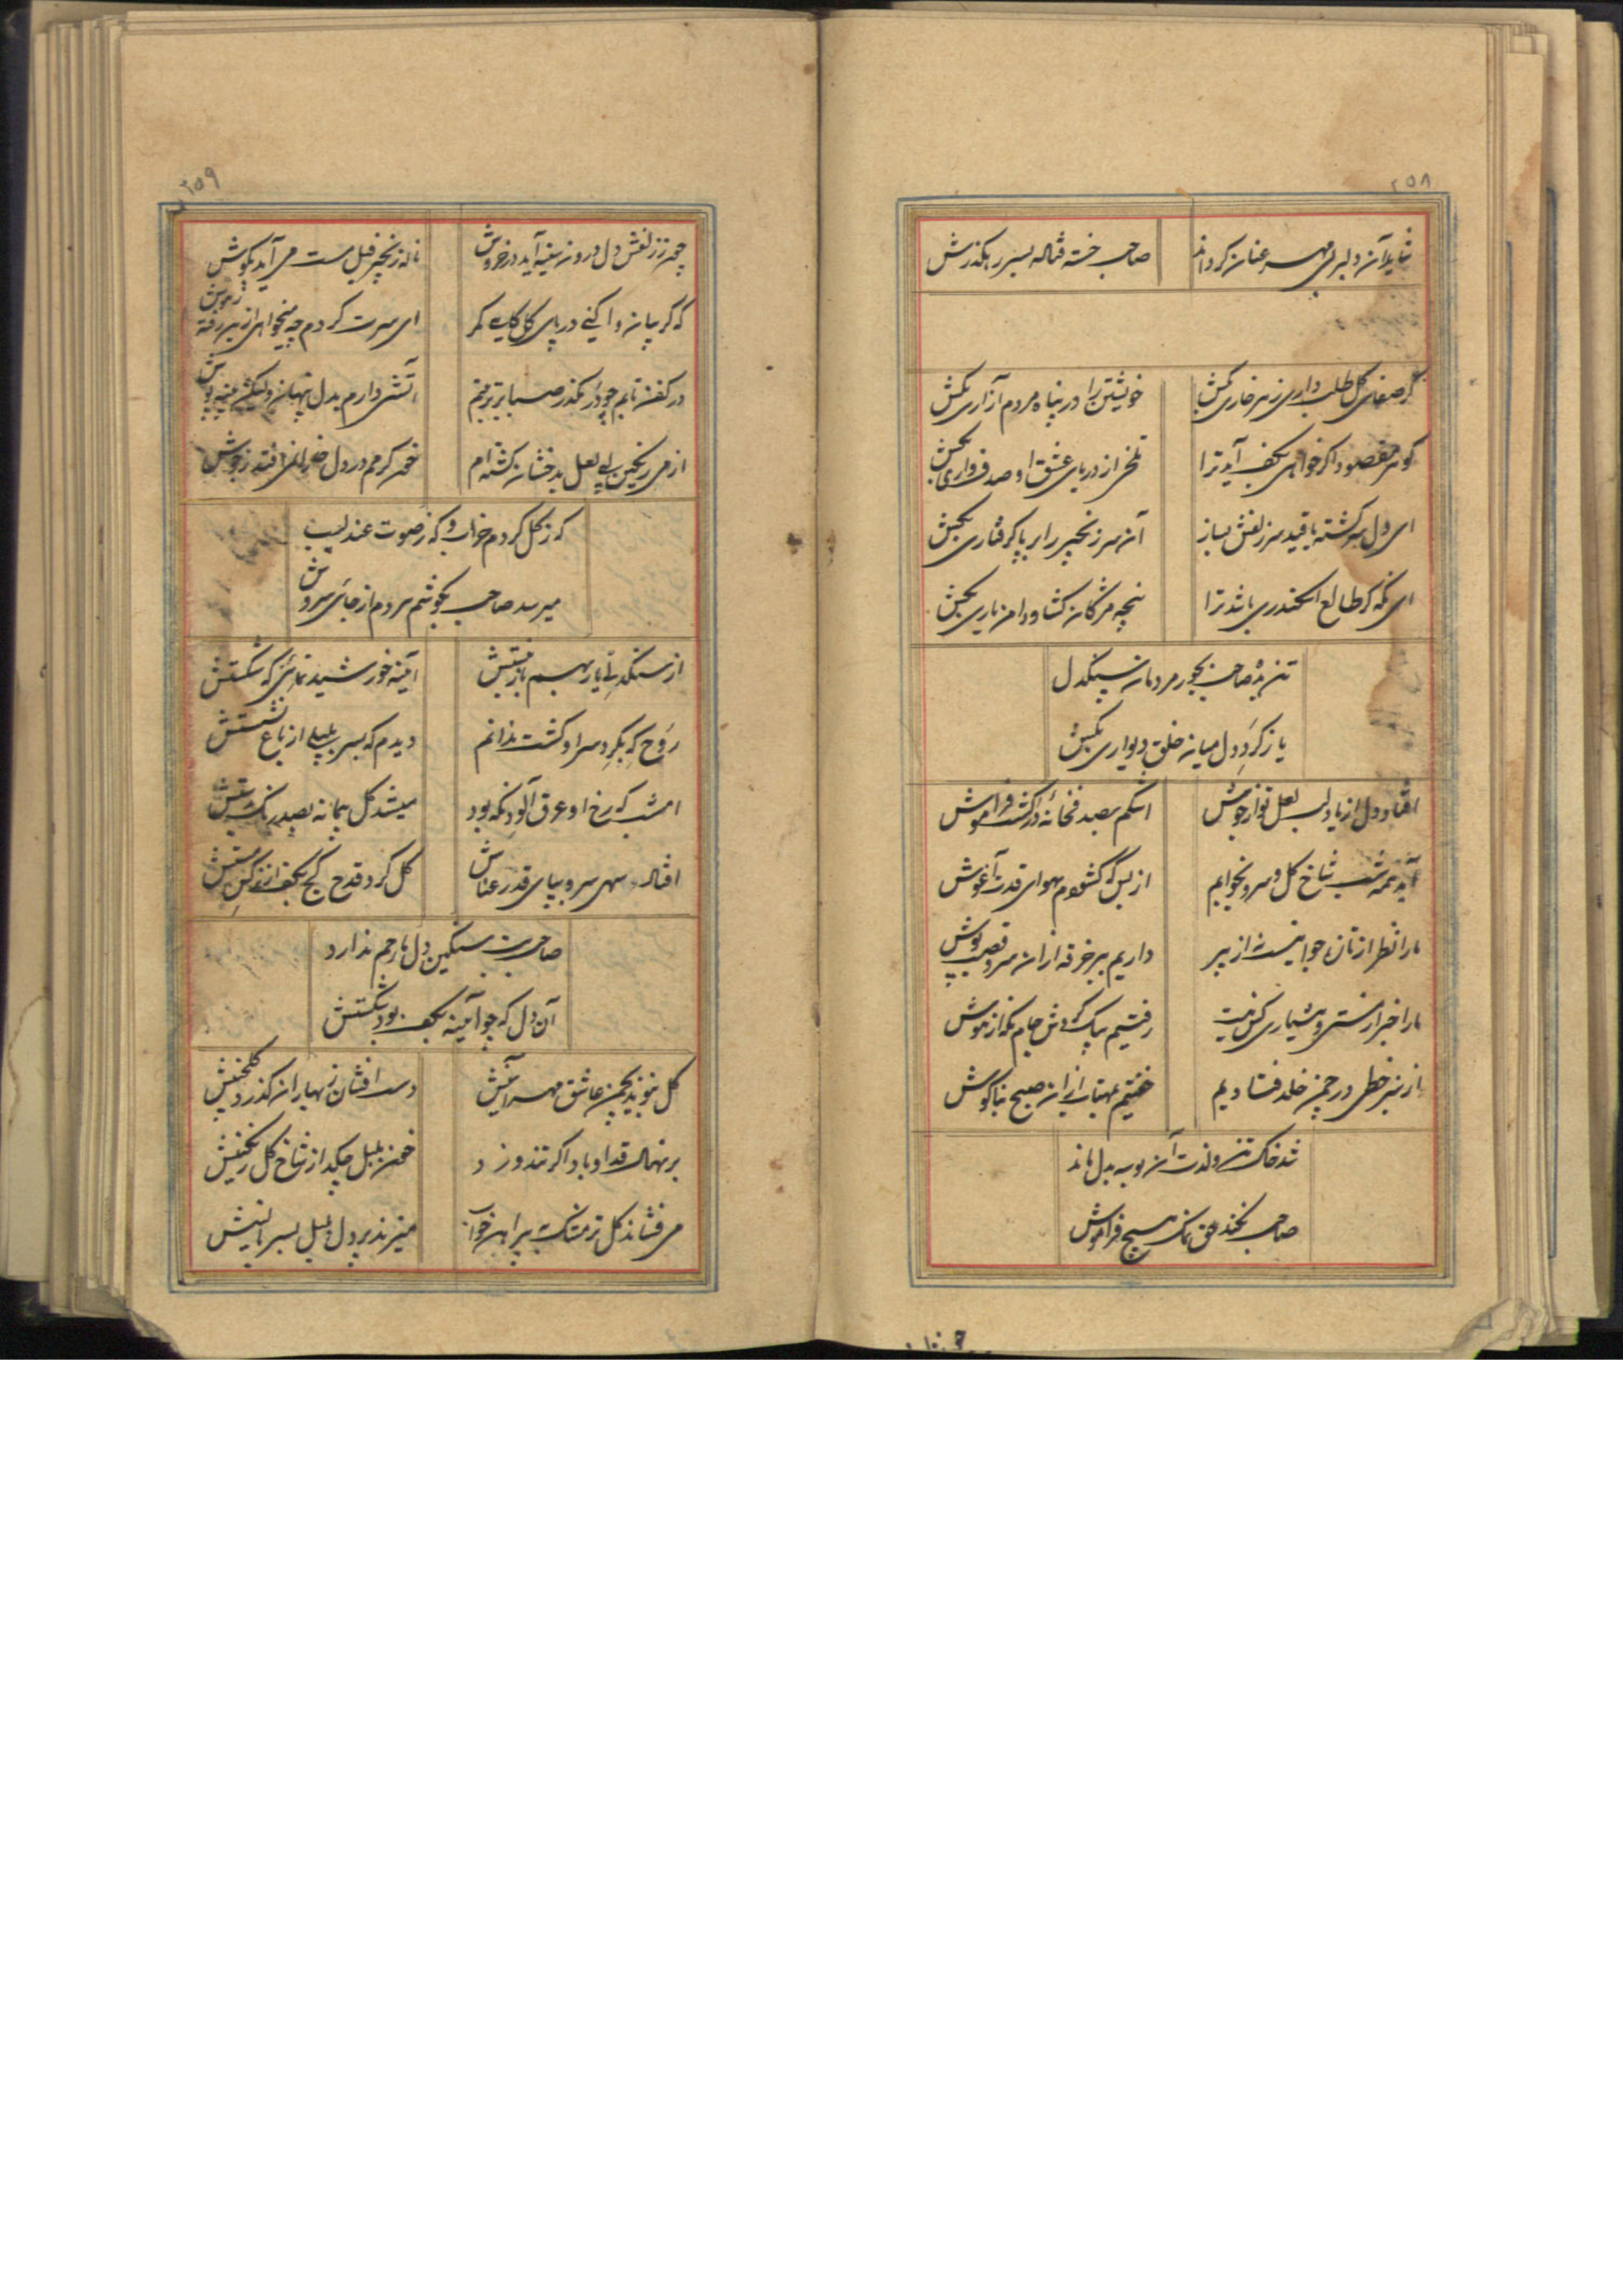 ۲۵۸
شاید آن دلبر بی مهر عنان گرداند صاحب خسته فتاده بسر رهگذرش
گر صفای گل طلب داری ز سر خاری بکش خویشتن را در پناه مردم آزاری بکش
گوهر مقصود اگر خواهی بکف آید ترا تلخی از دریای عشق او صدف واری بکش
ای دل سرگشته با قید سر زلفش بساز آن سر زنجیر را بر پا گرفتاری بکش
ای که گر طالع اسکندری باشد ترا پنجه مژگان گشا و دامن یاری بکش
صاحب بجور مردمان سنگدل
یا ز گرد دل میان خلق دیواری بکش
افتاد دل از یاد لب لعل تو از جوش اشکم بصد گشت فراموش
آید همه شب شاخ گل و سرو بخوابم از بس که گشودم بهوای قدت آغوش
ما را نظر از تازه جوانیست نه از پیر داریم بر خرقه ازان سرو قصب پوش
ما را خبر از مستی و هشیاری کس نیست رفتیم بیک گردش جام نگه از هوش
از سبز خطی در چمن خلد فتادیم خفتیم بمهتاب ازان صبح بناگوش
شد خاک تن و لذت آن بوسه بدل ماند
صاحب نکند حق نمک هیچ فراموش
۲۵۹
چون ز زلفش دل درون سینه آید در خروش ناله زنجیر فیل مست می آید بگوش
که گریبان وا کنی در پای گل ای سرت گردم چه میخواهی ازین رفته ز هوش
در کفن تابم چو بگذر صبا بر تربتم آتشی دارم بدل پنهان ولیکن پنبه پوش
از می رنگین لعل بدخشان گشته ام خون گرمم در دل افتد ز جوش
که ز گل کردم خراب و که ز صوت عندلیب
میرسد صاحب بگوشم هر دم از جائی سروش
از سنگدلی یار بهم باز نبستش آیینه خورشید نمائی که شکستش
روح که بگرد سر او گشت ندانم دیدم که بسر بلبلی از باغ نشستش
امشب که رخ او عرق آلود نگه بود میشد گل پیمانه بصد رنگ بدستش
افتاد سهی سرو بپای قد رعناش گل کرد قدح کج بکف از نرگس مستش
صاحب بت سنگین دل ما رحم ندارد
آن دل که چو آیینه بکف بود شکستش
گل نبوید بچمن عاشق مهر آیینش دست افشان ز بهاران گذرد گلچینش
بر نهال قد او باد اگر تند وزد خون بلبل چکد از شاخ گل رنگینش
می فشاند گل تر مشک به پیراهن خواب میزند پر دل بلبل بسر بالینش